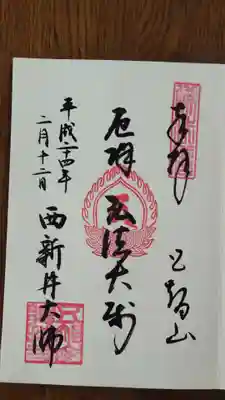 奉拝
五智山
厄除 弘法大師
西新井大師
平成二十四年
二月十二日